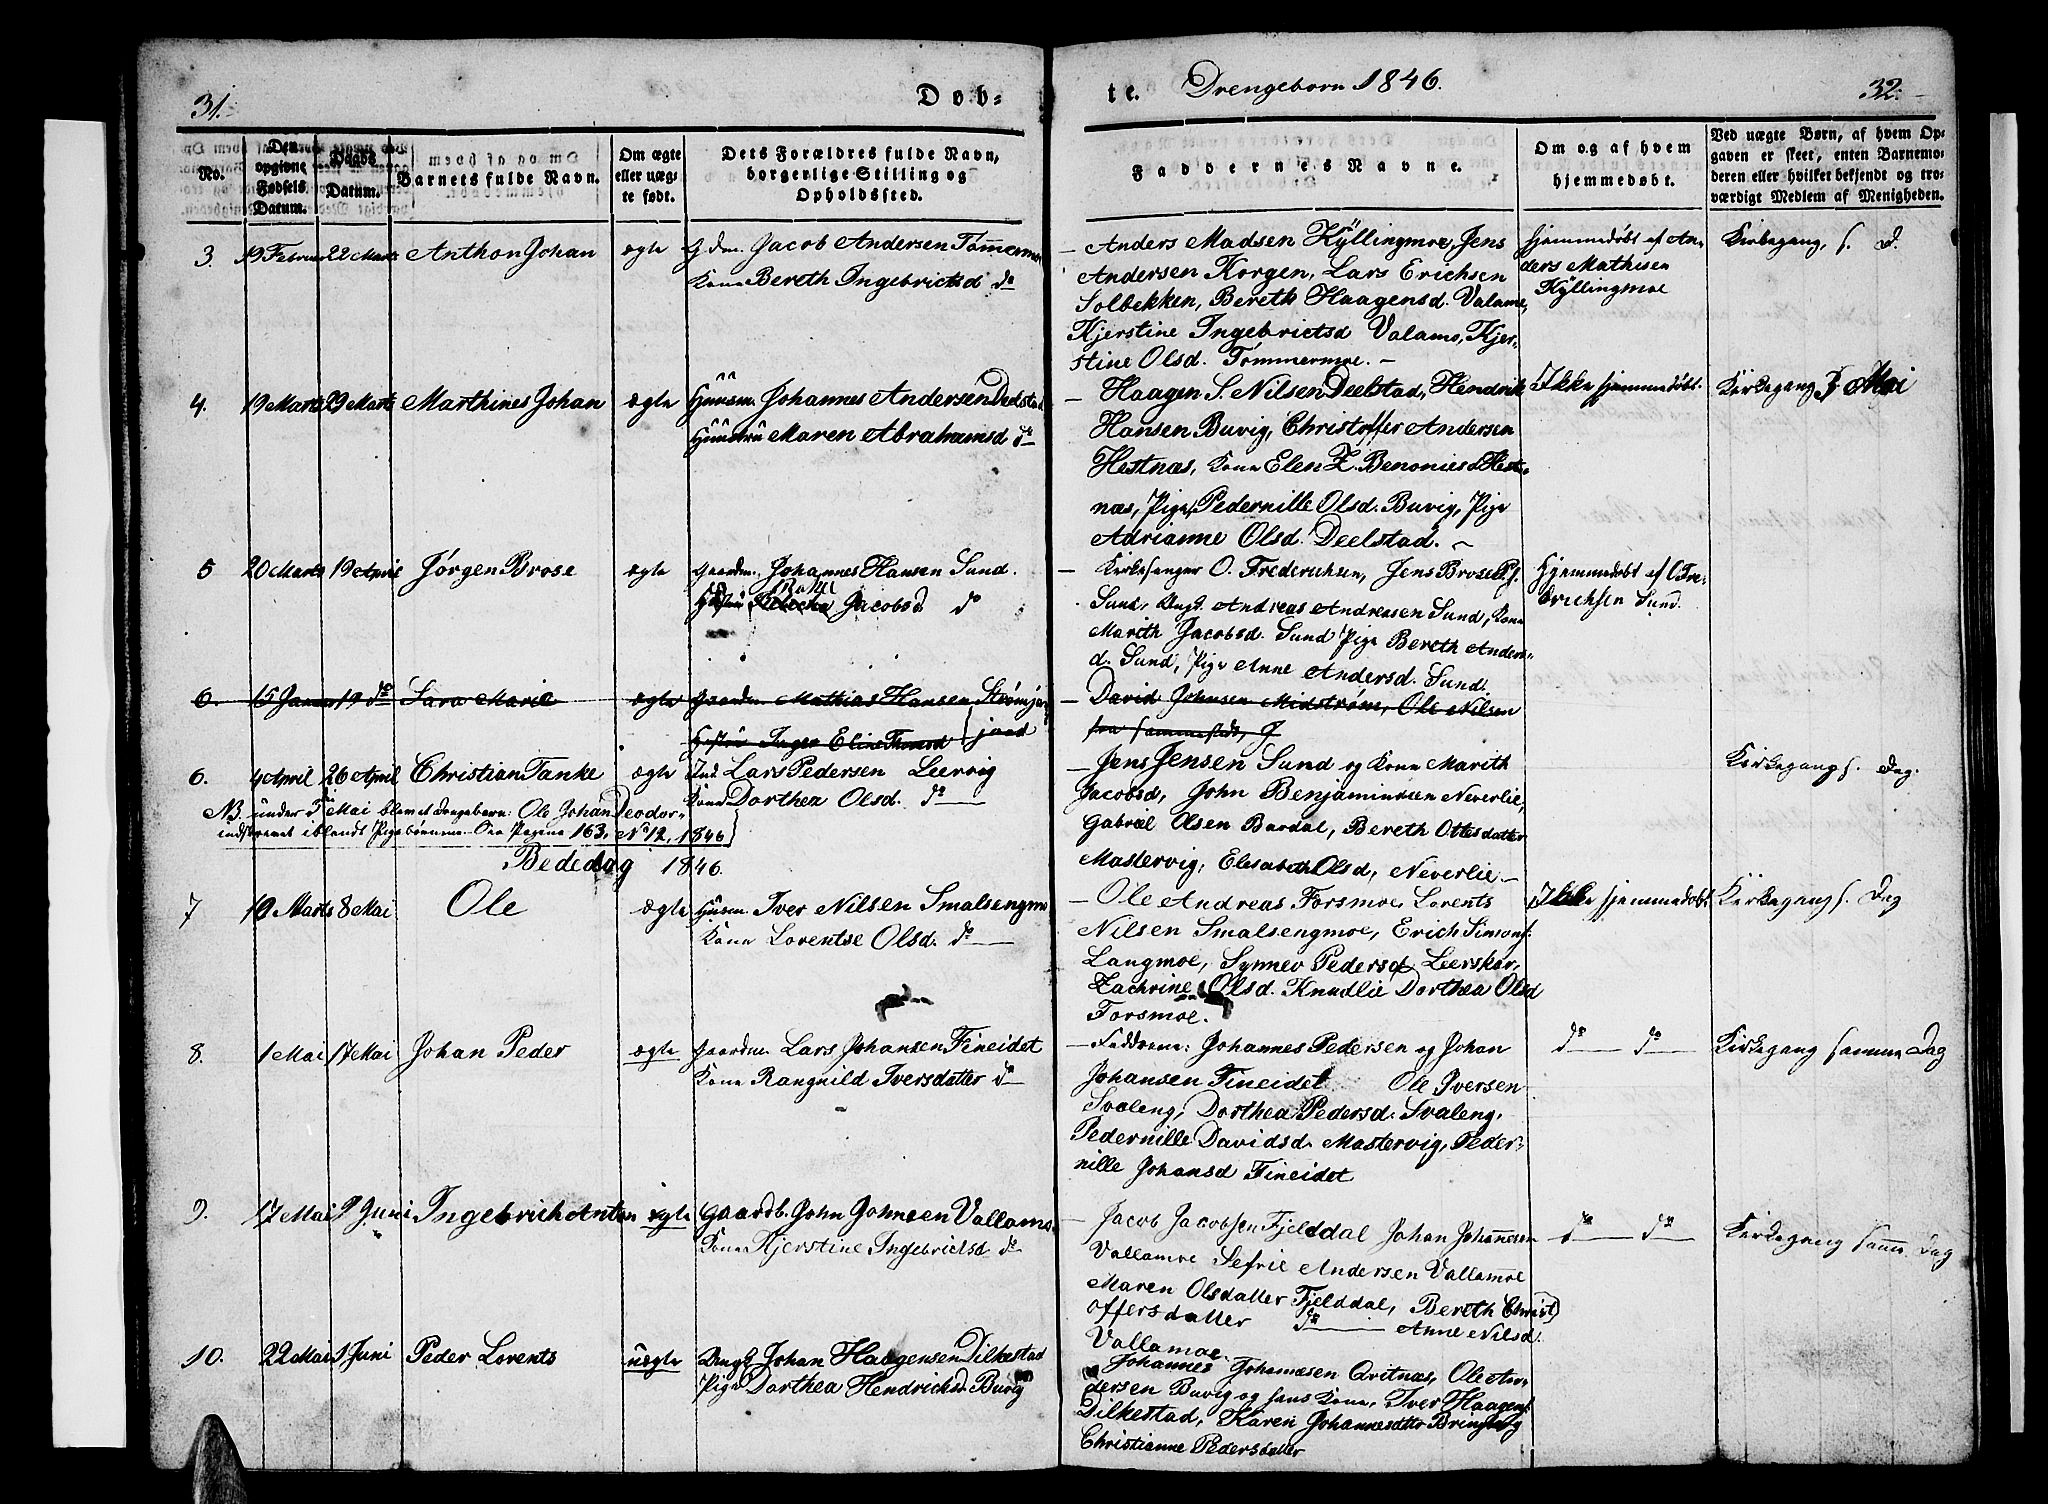 31.
Døb-
te.
Drengebørn 1846.
32.
No.
Den opgivne Fødsels Datum.
Daabs Datum.
Barnets fulde Navn.
Om ægte eller uægte født.
Dets Forældres fulde Navn, borgerlige Stilling og Opholdssted.
Faddernes Navne.
Om og af hvem hjemmedøbt.
Ved uægte Børn, af hvem Opgaven er skeet, enten Barnemoderen eller hvilket bekjendt og troværdigt Medlem af Menigheden.
3. 19 Februar 22 Marts Anthon Johan ægte Gdm. Jacob Andersen Tømmermoe
Kone Bereth Ingebrictsd do
Anders Madsen Kyllingmoe, Jens
Andersen Korgen, Lars Erichsen
Solbekken, Bereth Haagensd. Valame,
Kjerstine Ingebrictsd Valamo, Kjer-
stine Olsd. Tømmermoe.
Hjemmedøbt af An-
ders Mathisen
Kyllingmoe
Kirkegang, s. D.
4. 19 Marts 29 Marts Marthines Johan ægte Huusm. Johannes Andersen Deelstad
Huustru Maren Abrahamsd do
Haagen S. Nilsen Deelstad, Hendrik
Hansen Buvig, Christoffer Andersen
Hestnæs, Kone Elen Z. Benoniesd Hest-
næs, Pige Pedernille Olsd. Buvig, Pige
Adrianne Olsd. Deelstad.
Ikke hjemmedøbt.
Kirkegang 3 Mai
5 20 Marts 19 April Jørgen Brose ægte Gaardm. Johannes Hansen Sund.
Jacobsd do
Kirkesanger O. Frederichsen, Jens Brose
Sund, Ungk. Andreas Andreasen Sund, Kone
Marith Jacobsd. Sund Pige Bereth Anders-
d. Sund, Pige Anne Andersd. Sund.
Hjemmedøbt af O Fre-
derichsen Sund.
6. 15 Januar 19 do Sara Marie ægte Gaardm. Mathias Hansen Strømjord
Hustru Inger Eline Thomsd
David Johnsen Midstrøm, Ole Nilsen
fra sammested,
6. 4 April 26 April Christian Tanke ægte Ind. Lars Pedersen Leervig
Kone Dorthea Olsd. do
Jens Jensen Sund og Kone Marith
Jacobsd, John Benjaminsen Neverlie,
Gabriel Olsen Bardal, Bereth Ottesdatter
Mastervig, Elesabeth Olsd, Neverlie
Kirkegang s. Dag.
NB under Mai blev et Drengebarn Ole Johan Deodor
indskrevet iblandt Pigebørnene. See Pagina 163, No 12, 1846
Bededag 1846.
7 10 Marts 8 Mai Ole ægte Huusm. Iver Nilsen Smalsengmo
Kone Lorentse Olsd. do
Ole Andreas Forsmoe, Lorents
Nilsen Smalsengmoe, Erich Simons.
Langmoe, Synnev Pedersd Leerskar,
Zachrine Olsd. Knudlie Dorthea Olsd
Forsmoe.
Ikke hjemmedøbt
Kirkegang s. Dag
8. 1 Mai 17 Mai Johan Peder ægte Gaardm. Lars Johansen Fineidet
Kone Rangnild Iversdatter do
Faddrene: Johannes Pedersen og Johan
Johansen Fineidet Ole Iversen
Svaleng, Dorthea Pedersd. Svaleng,
Pedernille Davidsd. Mastervig, Peder-
nille Johansd Fineidet
do do
Kirkegang samme Dag
9. 17 Mai 1 Juni Ingebrich Anton ægte Gaardb. John Johnsen Vallamo
Kone Kjerstine Ingebrictsd do
Jacob Jacobsen Fjelddal Johan Johannesen
Vallamoe Sefrie Andersen Vallamoe
Maren Olsdatter Fjelddal, Bereth Christ
offersdatter do Anne Nilsd.
Vallamoe
do do
Kirkegang samm. Dag
10. 22 Mai 1 Juni Peder Lorents uægte Ungk Johan Haagensen Dilkestad
Pige Dorthea Hendricksd. Buvig
Johannes Johannesen Qvitnæs, Ole An-
dersen Buvig og hans Kone, Iver Haagens.
Dilkestad, Karen Johannesdatter
Christianne Pedersdatter